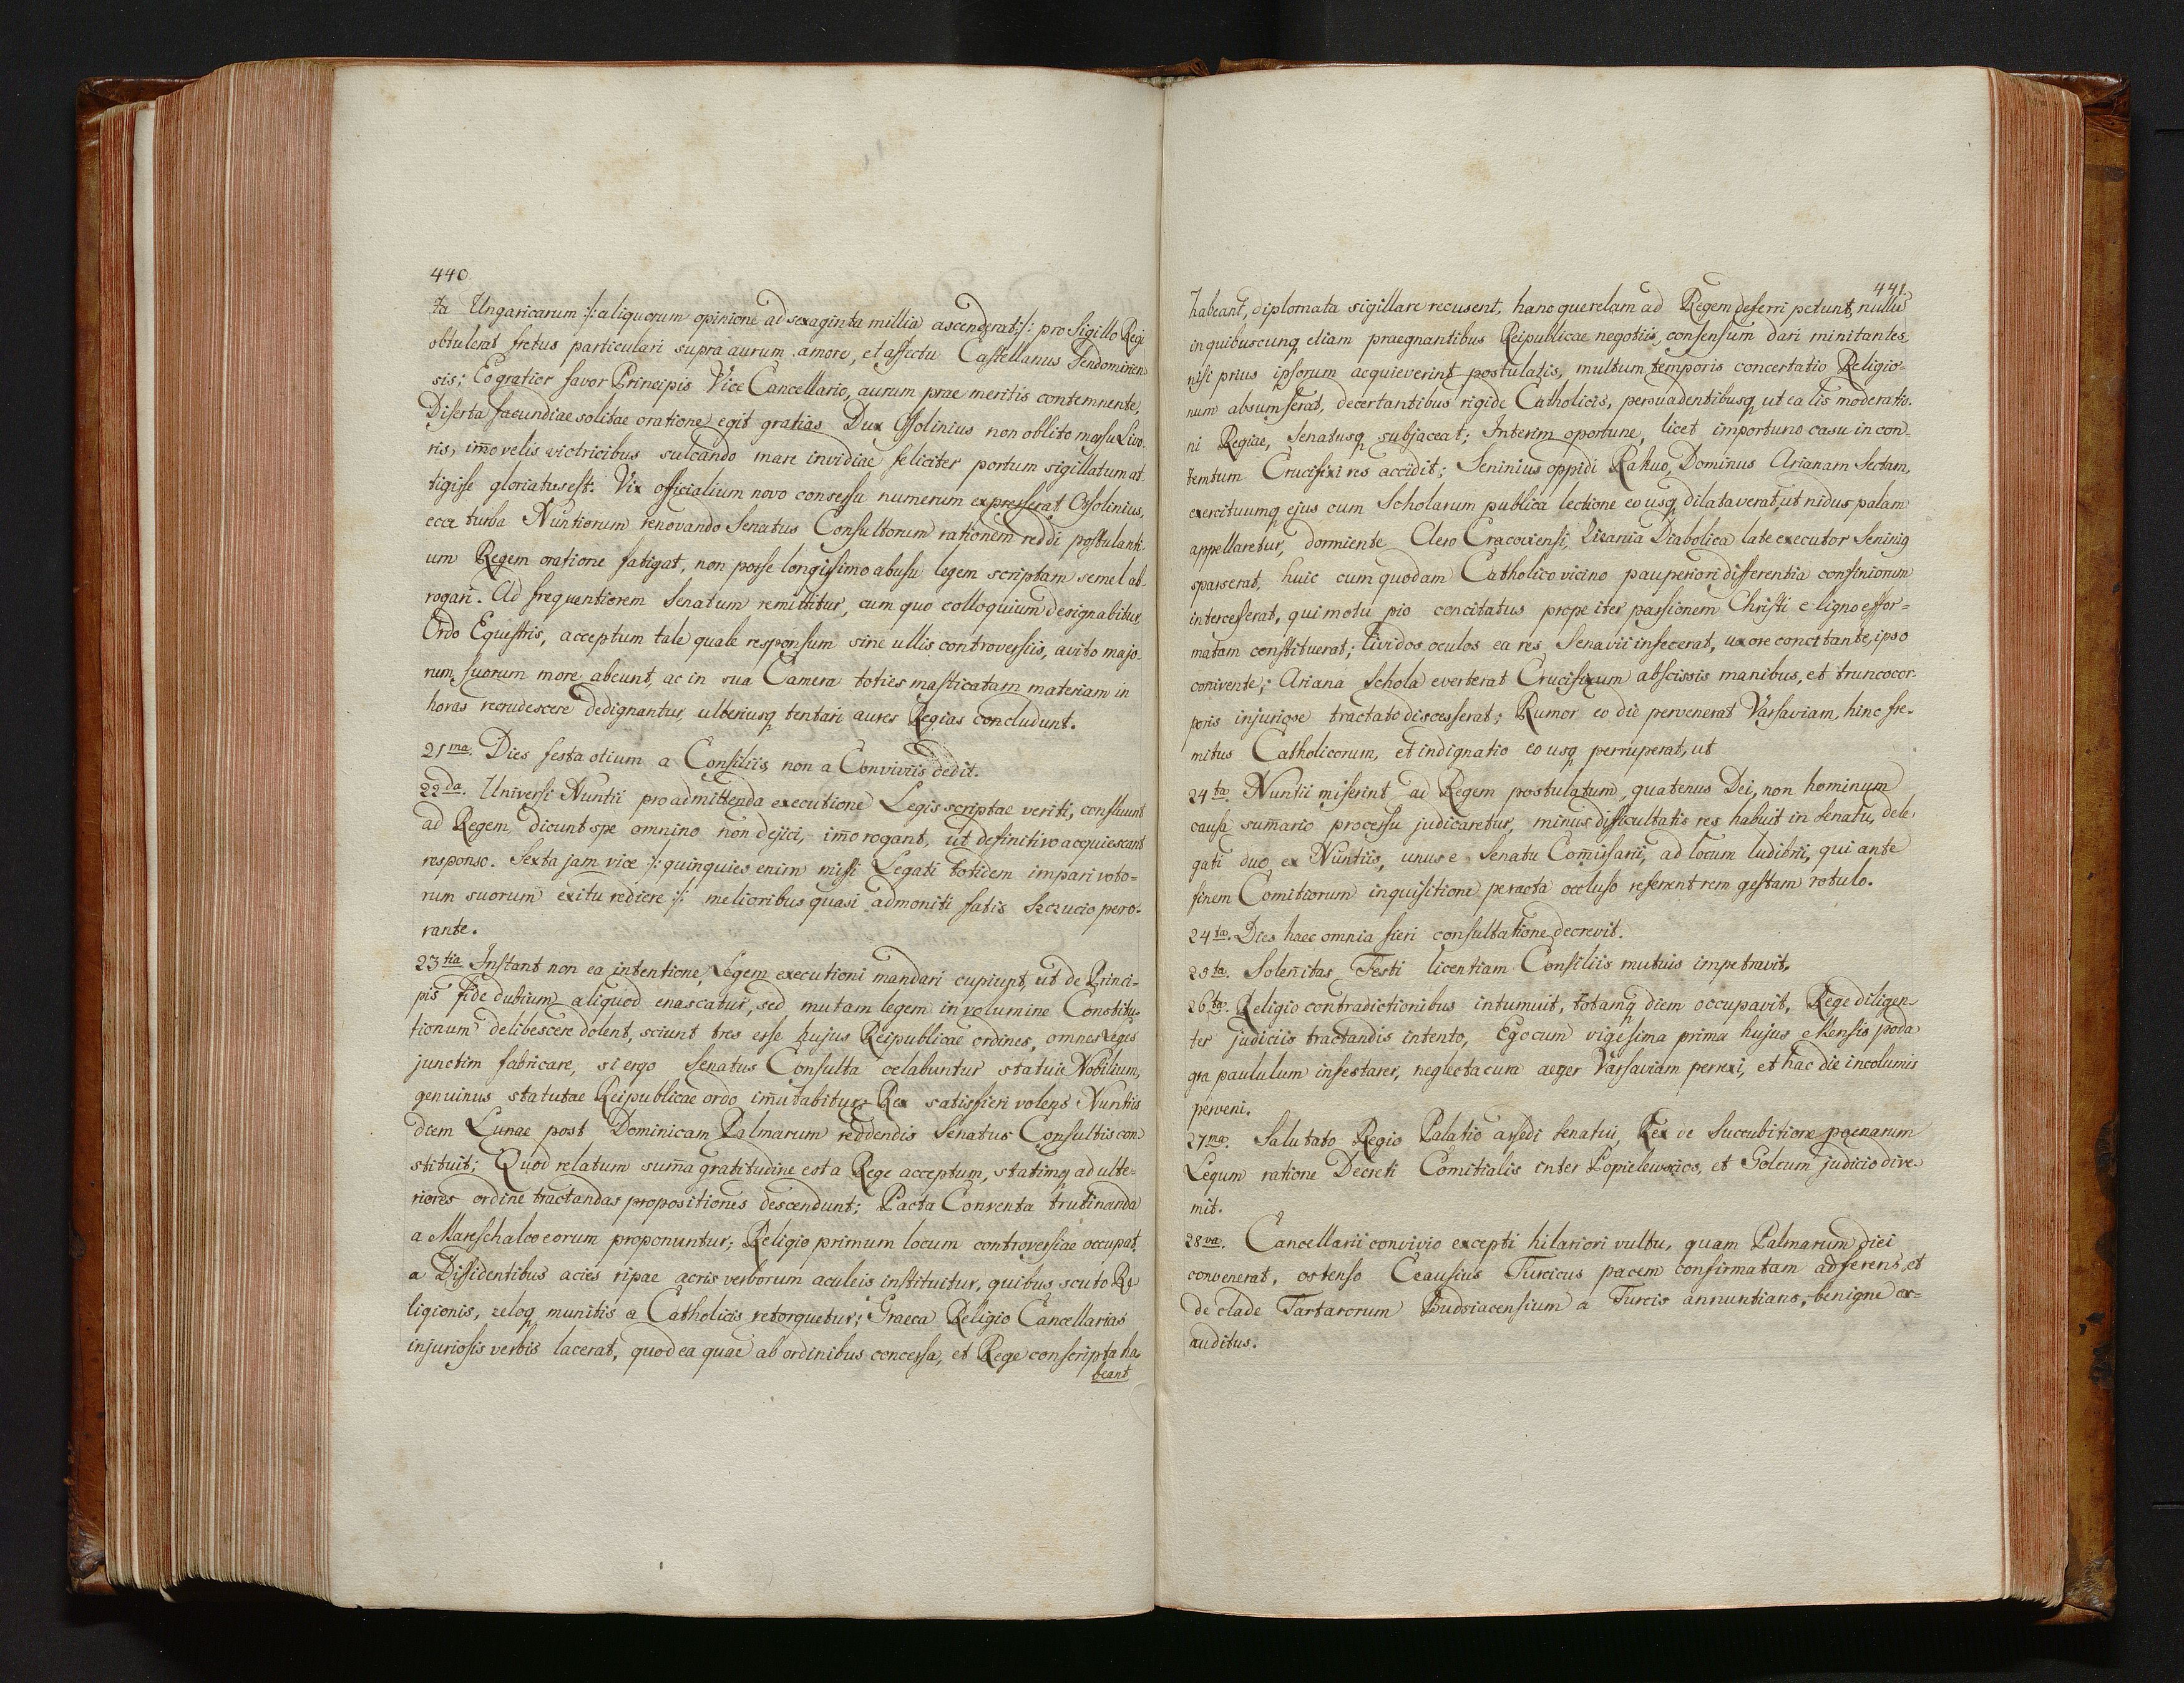 440
ta Ungaricarum :/: aliquorum opinione ad sexaginta millia ascenderat :/: pro Sigillo Regi
obtulerat fretus particulari supra aurum amore, et affectu Castellanus Sendomirien
sis; Eo gratior favor Principis Vice Cancellario, aurum prae meritis contemnente,
Diserta facundiae solitae oratione egit gratias Dux Ossolinius non oblito morsu Livo-
ris, im̃o velis victricibus sulcando mare invidiae feliciter portum sigillatum at-
tigisse gloriatus est. Vix officialium novo consessu numerum expresserat Ossolinius,
ecce turba Nuntiorum renovando Senatus Consultorum rationem reddi postulanti-
um Regem oratione fatigat, non posse longissimo abusu legem scriptam semel ab-
rogari. Ad frequentiorem Senatum remittitur, cum quo colloquium designabitur,
Ordo Equestris, acceptum tale quale responsum sine ullis controversiis, avito majo-
rum suorum more abeunt, ac in sua Camera toties masticatam materiam in
horas recrudescere dedignantur, ulteriusq tentari aures Regias concludunt.
21ma. Dies festa otium a Consiliis non a Conviviis dedit.
22da. Universi Nuntii pro admittenda executione Legis scriptae veriti, confluunt
ad Regem, dicunt spe omnino non dejici, im̃o rogant, ut definitivo acquiescant
responso. Sexta jam vice :/: quinquies enim missi Legati totidem impari voto-
rum suorum exitu rediere :/: melioribus quasi admoniti fatis Szczucio pero-
rante.
23tia Instant non ea intentione, Legem executioni mandari cupiunt, ut de Princi-
pis fide dubium aliquod enascatur, sed mutam legem in volumine Constitu-
tionum delibescere dolent, sciunt tres esse hujus Reipublicae ordines, omnes leges
junctim fabricare, si ergo Senatus Consulta celabuntur statui Nobilium,
genuinus statutae Reipublicae ordo im̃utabitur; Rex satisfieri volens Nuntiis
diem Lunae post Dominicam Palmarum reddendis Senatus Consultis con-
stituit; Quod relatum sum̃a gratitudine est a Rege acceptum, statimq ad ulte-
riores ordine tractandas propositiones descendunt; Pacta Conventa trutinanda
a Mareschalco eorum proponuntur; Religio primum locum controversiae occupat,
a Dissidentibus acies ripae acris verborum aculeis instituitur, quibus scuto Re
ligionis, zeloq munitis a Catholicis retorquetur; Graeca Religio Cancellarias
injuriosis verbis lacerat, quod ea quae ab ordinibus concessa, et Rege conscripta ha-
beant
441.
habeant, diplomata sigillare recusent, hanc querelam ad Regem deferri petunt, nulli
in quibuscunq etiam praegnantibus Reipublicae negotiis, consensum dari minitantes,
nisi prius ipsorum acquieverint postulatis, multum temporis concertatio Religio-
num absumserat, decertantibus rigide Catholicis, persuadentibusq ut ea lis moderatio-
ni Regiae, Senatusq subjaceat; Interim oportune, licet importuno casu in con-
temtum Crucifixi res accidit; Seninius oppidi Rakuo, Dominus Arianam Sectam,
exercituumq ejus cum Scholarum publica lectione eo usq dilataverat, ut nidus palam
appellaretur, dormiente Clero Cracoviensi, Zizania Diabolica late executor Seninig
sparserat, huic cum quodam Catholico vicino pauperiori differentia confinionum
intercesserat, qui motu pio concitatus prope iter passionem Christi e ligno effor-
matam constituerat; lividos oculos ea res Senavii infecerat, uxore concitante, ipso
conivente; Ariana Schola everterat Crucifixum abscissis manibus, et trunco cor-
poris injuriose tractato discesserat; Rumor eo die pervenerat Varsaviam, hinc fre-
mitus Catholicorum, et indignatio eo usq perruperat, ut
24ta. Nuntii miserint ad Regem postulatum, quatenus Dei, non hominum
causa sum̃ario processu judicaretur, minus difficultatis res habuit in Senatu, dele-
gati duo ex Nuntiis, unus e Senatu Com̃issarii, ad locum ludibrii, qui ante
finem Comitiorum inquisitione peracta occluso referent rem gestam rotulo.
24ta. Dies haec omnia fieri consultatione decrevit.
25ta. Solen̄itas Festi licentiam Consiliis mutuis impetravit.
26ta. Religio contradictionibus intumuit, totamq diem occupavit, Rege diligen-
ter judiciis tractandis intento, Ego cum vigesima prima hujus Mensis poda-
gra paululum infestarer, neglecta cura aeger Varsaviam perrexi, et hac die incolumis
perveni.
27ma. Salutato Regio Palatio assedi Senatui, Rex de Succubitione poenarum
Legum ratione Decreti Comitialis inter Popielewscios, et Golcum judicio dire-
mit.
28va. Cancellarii convivio excepti hilariori vultu, quam Palmarum diei
convenerat, ostenso Czausius Turcicus pacem confirmatam adferens, et
de clade Tartarorum Budziacensium a Turcis annuntians, benigne ex-
auditus.